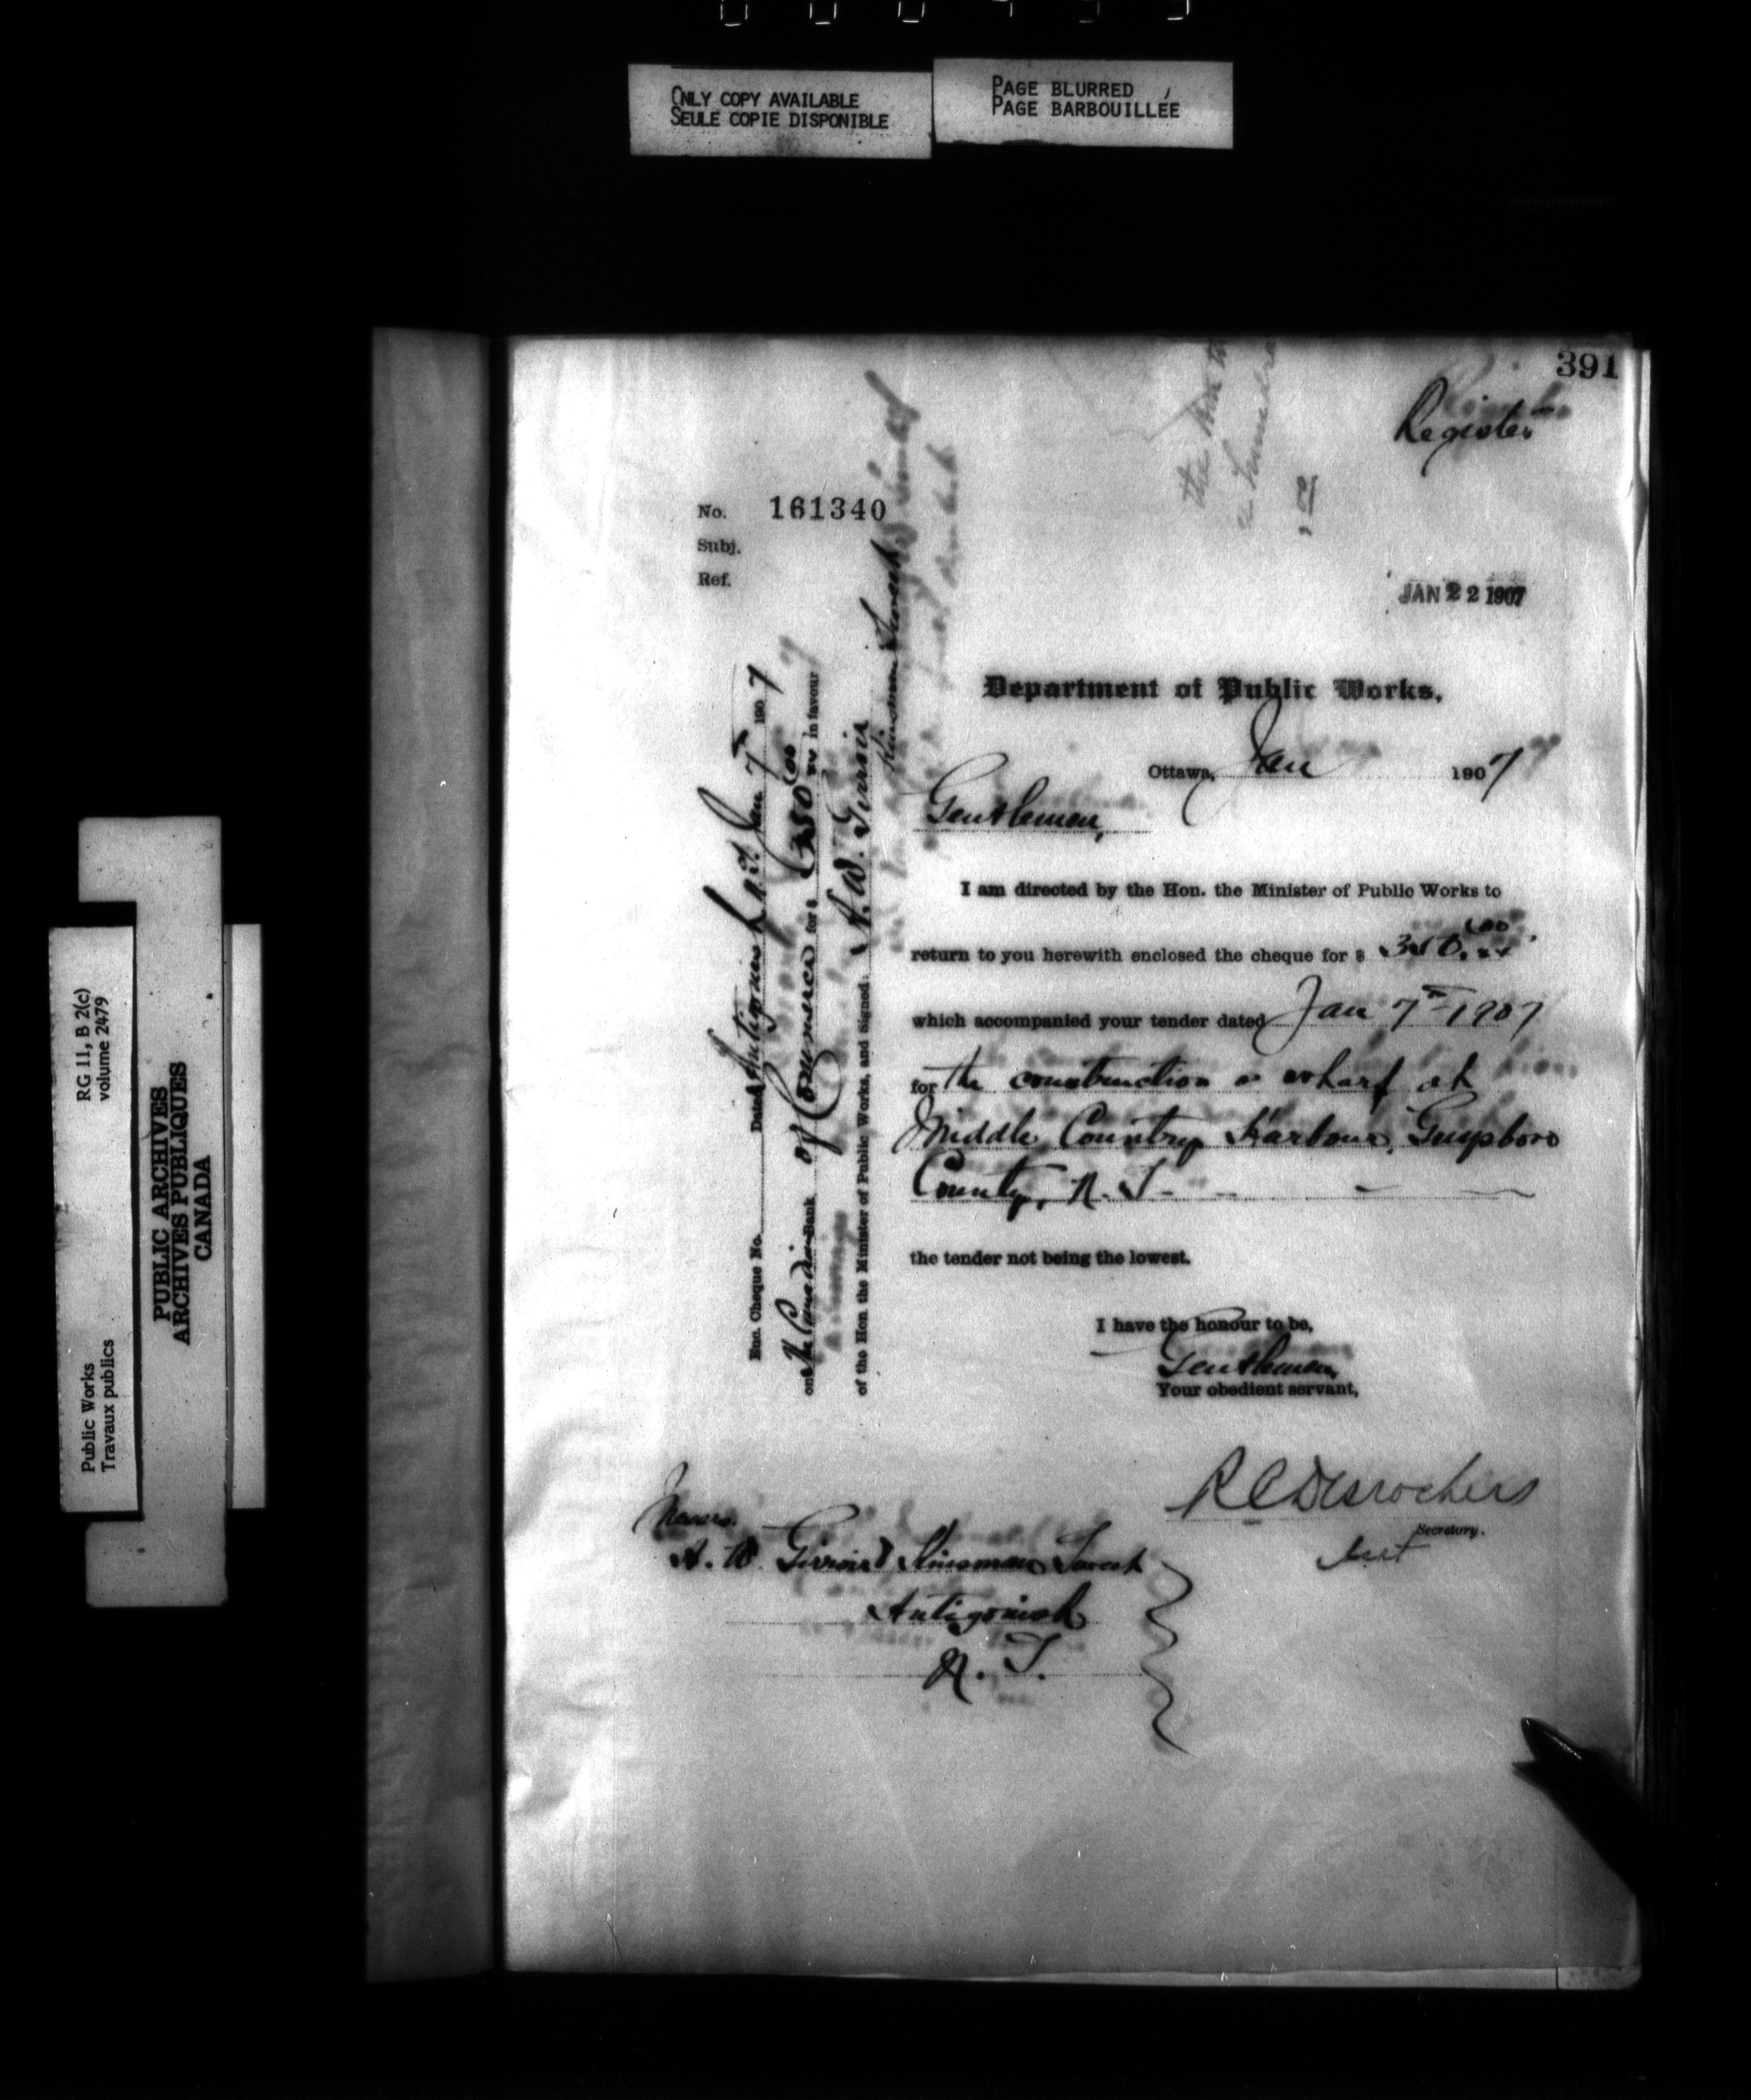 ONLY COPY AVAILABLE
SEULE COPIE DISPONIBLE
PAGE BLURRED
PAGE BARBOUILLÉE
391
Register
No. 161340
Subj.
Ref.
JAN 22 1907
Department of Public Works.
Ottawa, Jan 1907
Gentlemen,
I am directed by the Hon. the Minister of Public Works to
return to you herewith enclosed the cheque for $ 350.00
which accompanied your tender dated Jan 7th 1907
for the construction a wharf at
Middle Country Harbour, Guysboro
County, N. S.
the tender not being the lowest.
I have the honour to be,
Gentlemen,
Your obedient servant,
RC Desrochers
Secretary.
Messrs.
A. W. Girroir & Kinsman Sweet
Antigonish
N. S.
Enc. Cheque No. Dated Antigonish N.S. Jan 7th 1907
on The Canadian Bank of Commerce for $ 350.00 in favour
of the Hon the Minister of Public Works, and Signed: A. W. Girroir
Kinsman Sweet
RG 11, B 2(c)
volume 2479
Public Works
Travaux publics
PUBLIC ARCHIVES
ARCHIVES PUBLIQUES
CANADA